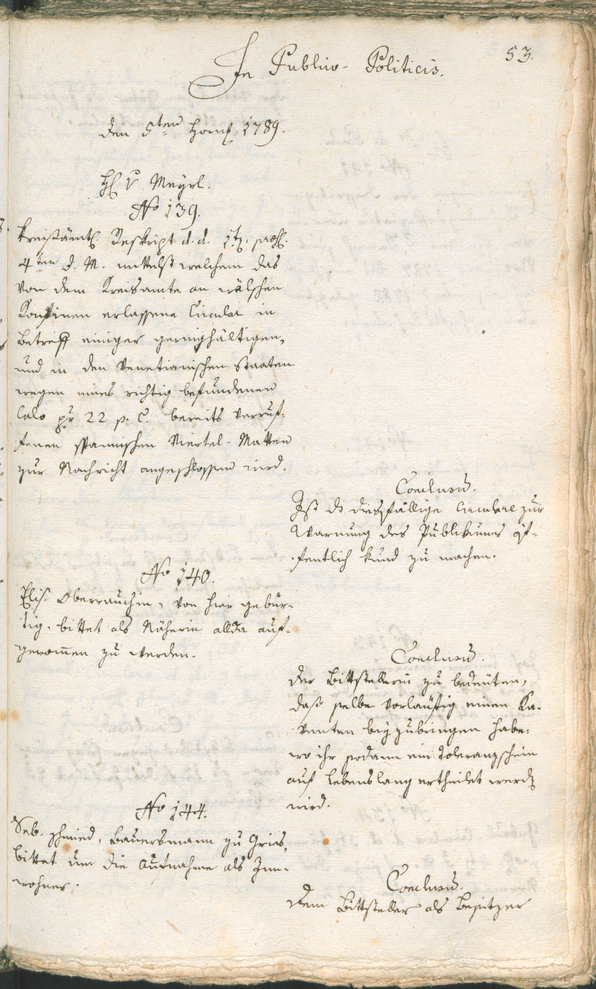 53.
In Publico-Politicis.
den 5ten Horng 1789.
H. v. Mayrl.
No 139.
Kreisämtl. Reskript d. d. et präs.
4ten d. M. mittelst welchem das
von dem Kreisamte an wälschen
Konfinen erlassene Circular in
Betreff einiger geringhältigen,
und in den Venetianischen Staaten
wegen eines richtig befundenen
Calo pr 22 p. C. bereits verruf-
fenen spannischen Viertel-Matten
zur Nachricht angeschlossen wird.
Conclusum.
Ist das diesfällige Circulare zur
Warnung des Publikums öf-
fentlich kund zu machen.
No 140.
Elis. Oberrauchin, von hier gebür-
tig, bittet als Näherin allda auf-
genommen zu werden.
Conclusum.
Der Bittstellerin zu bedeuten,
daß selbe vorläufig einen Ka-
venten beyzubringen habe,
wo ihr sodann ein Toleranzschein
auf lebenslang ertheilet werden
wird.
No 144.
Seb. Schmied, Bauersmann zu Gries,
bittet um die Aufnahme als Inn-
wohner.
Conclusum.
Dem Bittsteller als Besitzer